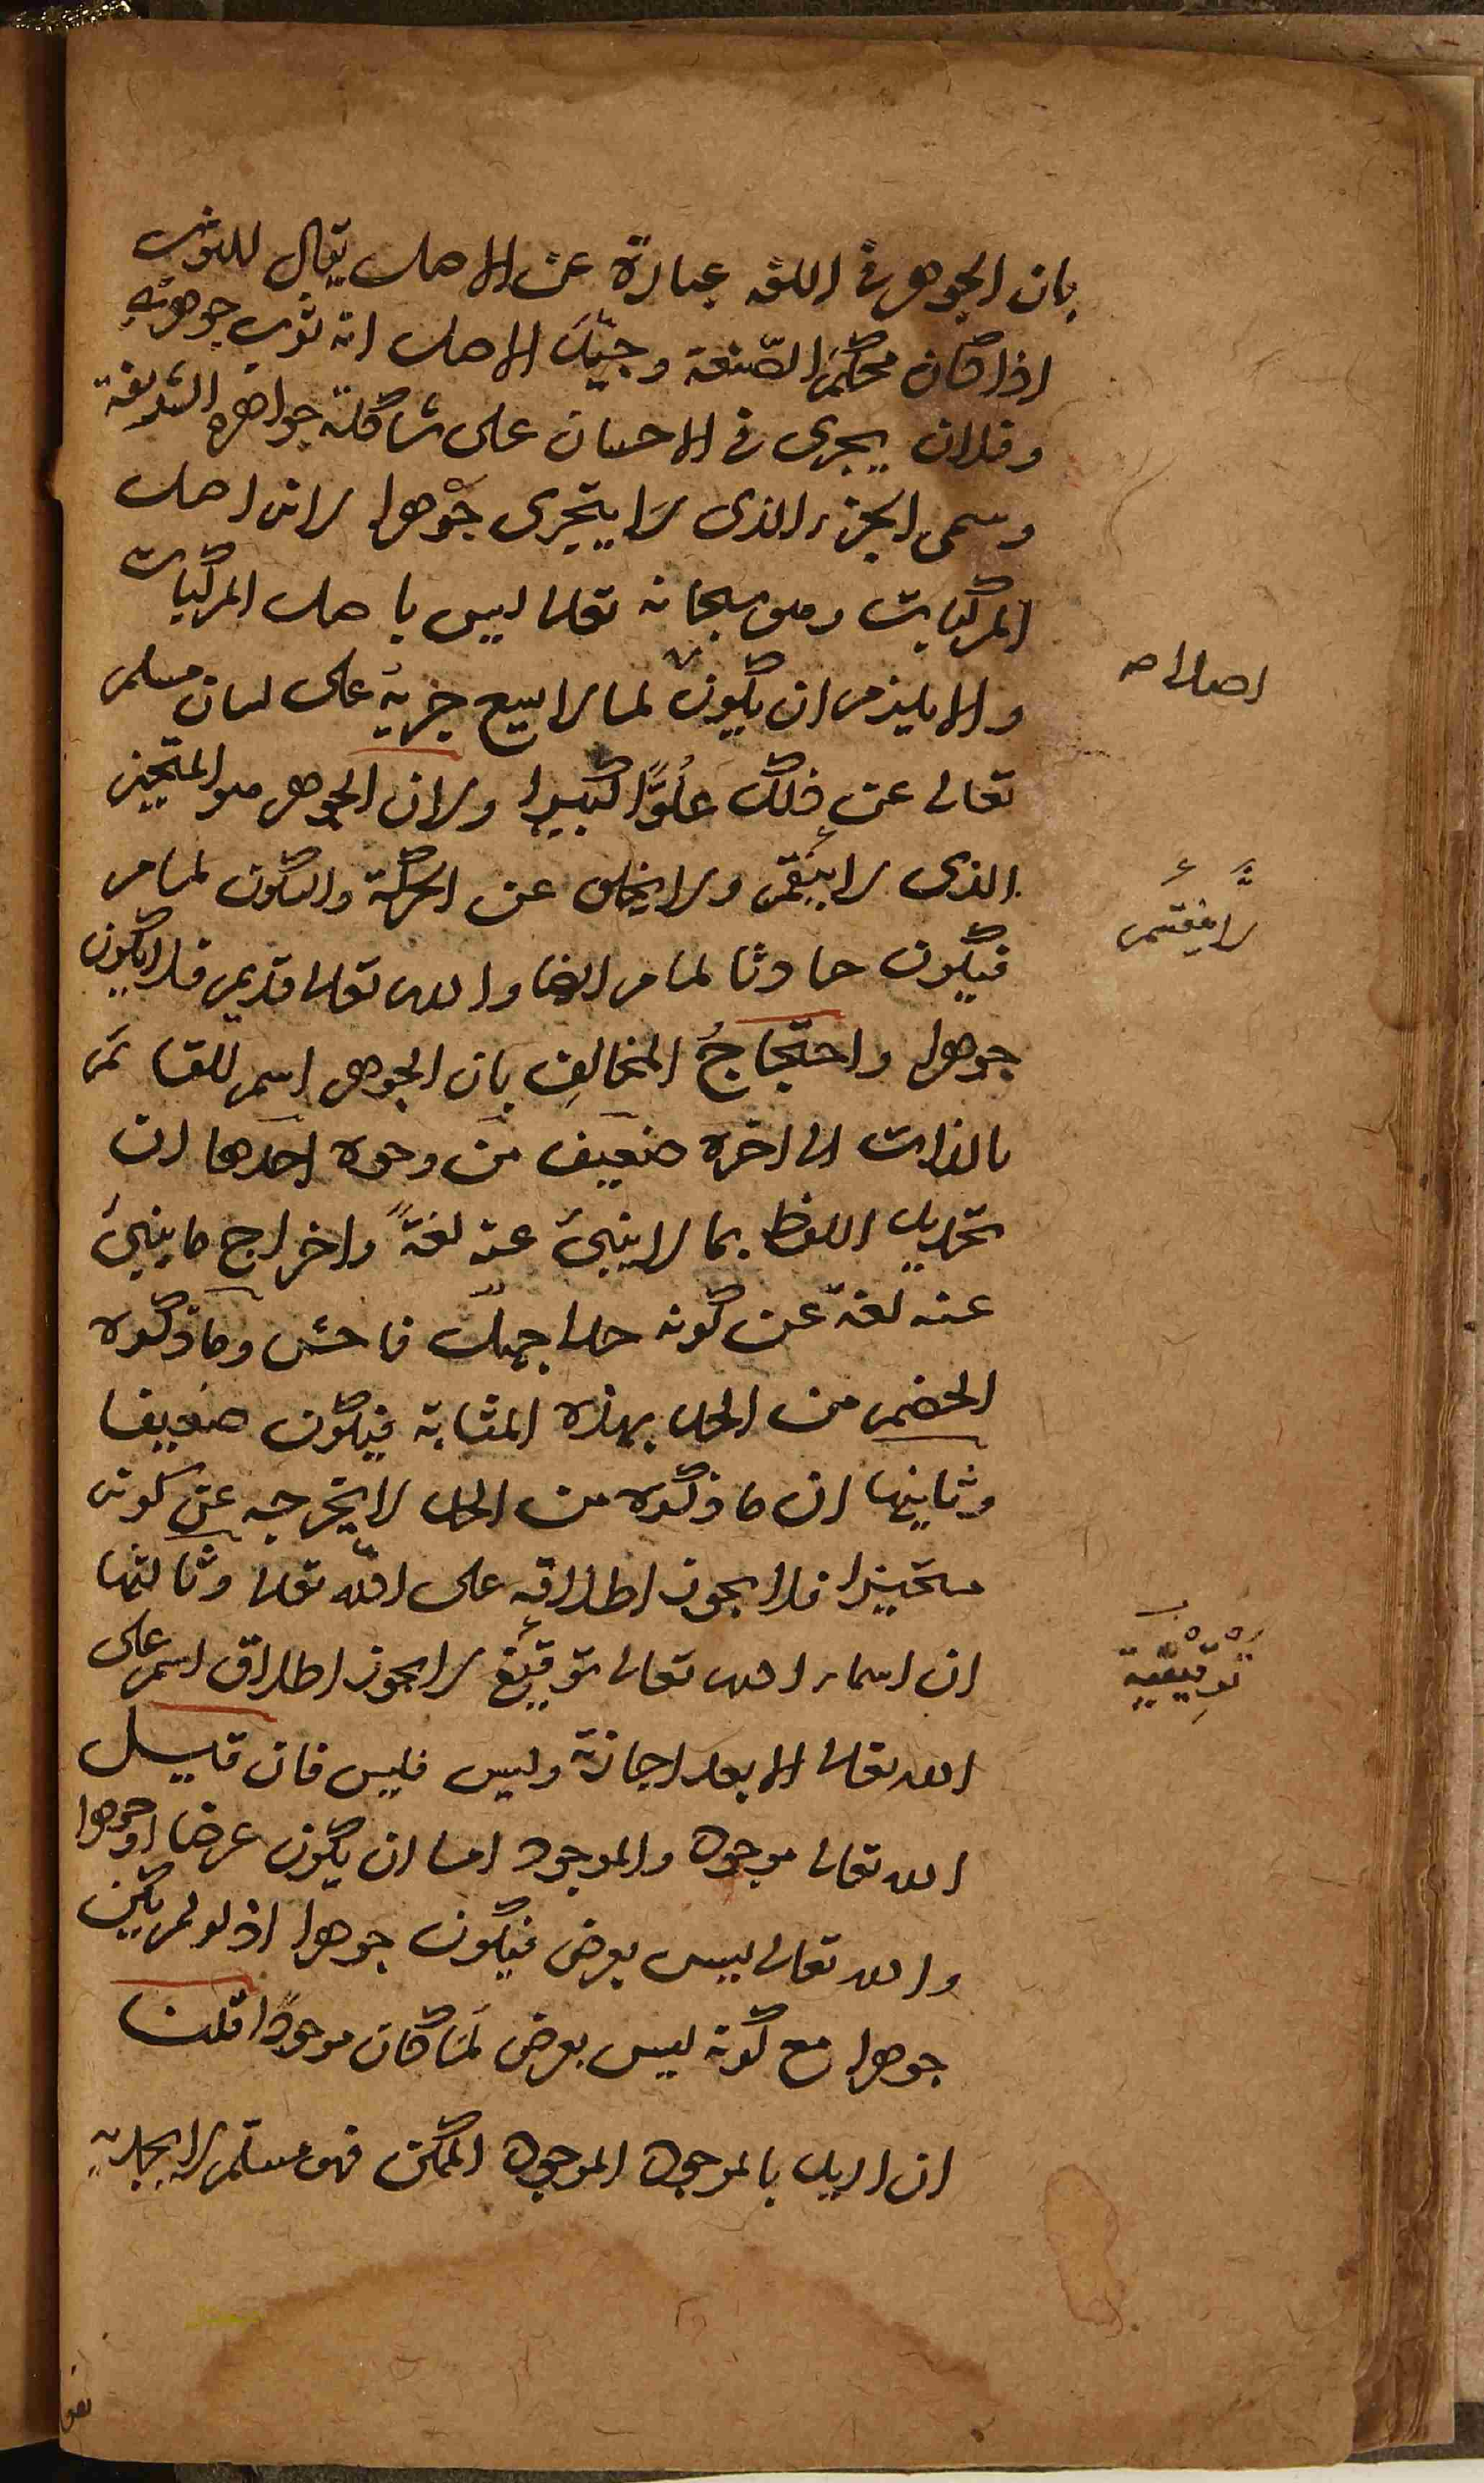 بان الجوهر في اللغة عبارة عن الاصل يقال للثوب
اذا كان محكم الصنعة وجيّد الاصل انه ثوب جوهريّ
وفلان يجرى في الاحسان على شاكلة جواهره الشريفة
وسمى الجزء الذى لا يتجزى جوهرا لانه اصل
المركبات وهو سبحانه تعالى ليس باصل المركبات
والا يلزم ان يكون لما لا
على لسان مسلم
تعالى عن ذلك علوًّا كبيرا ولان الجوهر هو المتحيز
الذى لا ينقسم ولا يخلو عن الحركة والسكون لما مر
فيكون حادثا لما مر ايضا والله تعالى قديم فلا يكون
جوهرا واحتجاجُ المخالفِ بان الجوهر اسم للقائم
بالذات الى اخره ضعيف من وجوه احدها ان
تحديد اللفظ بما لا ينبئ عنه لغةً واخراج ما ينبئ
عنه لغة عن كونه حدا جهلٌ فاحش وما ذكره
الخصم من الحد بهذه المثابة فيكون ضعيفا
وثانيها ان ما ذكره من الحد لا يخرجه عن كونه
متحيزا فلا يجوز اطلاقه على الله تعالى وثالثها
ان اسماء الله تعالى توقيفية لا يجوز اطلاق اسم على
الله تعالى الا بعد اجازة وليس فليس فان قيل
الله تعالى موجود والموجود اما ان يكون عرضا او جوهرا
والله تعالى ليس بعرض فيكون جوهرا اذ لو لم يكن
جوهرا مع كونه ليس بعرض لما كان موجودًا قلنا
ان اريد بالموجود الموجود الممكن فهو مسلم
اصلا
لا ينقسم
توقيفية